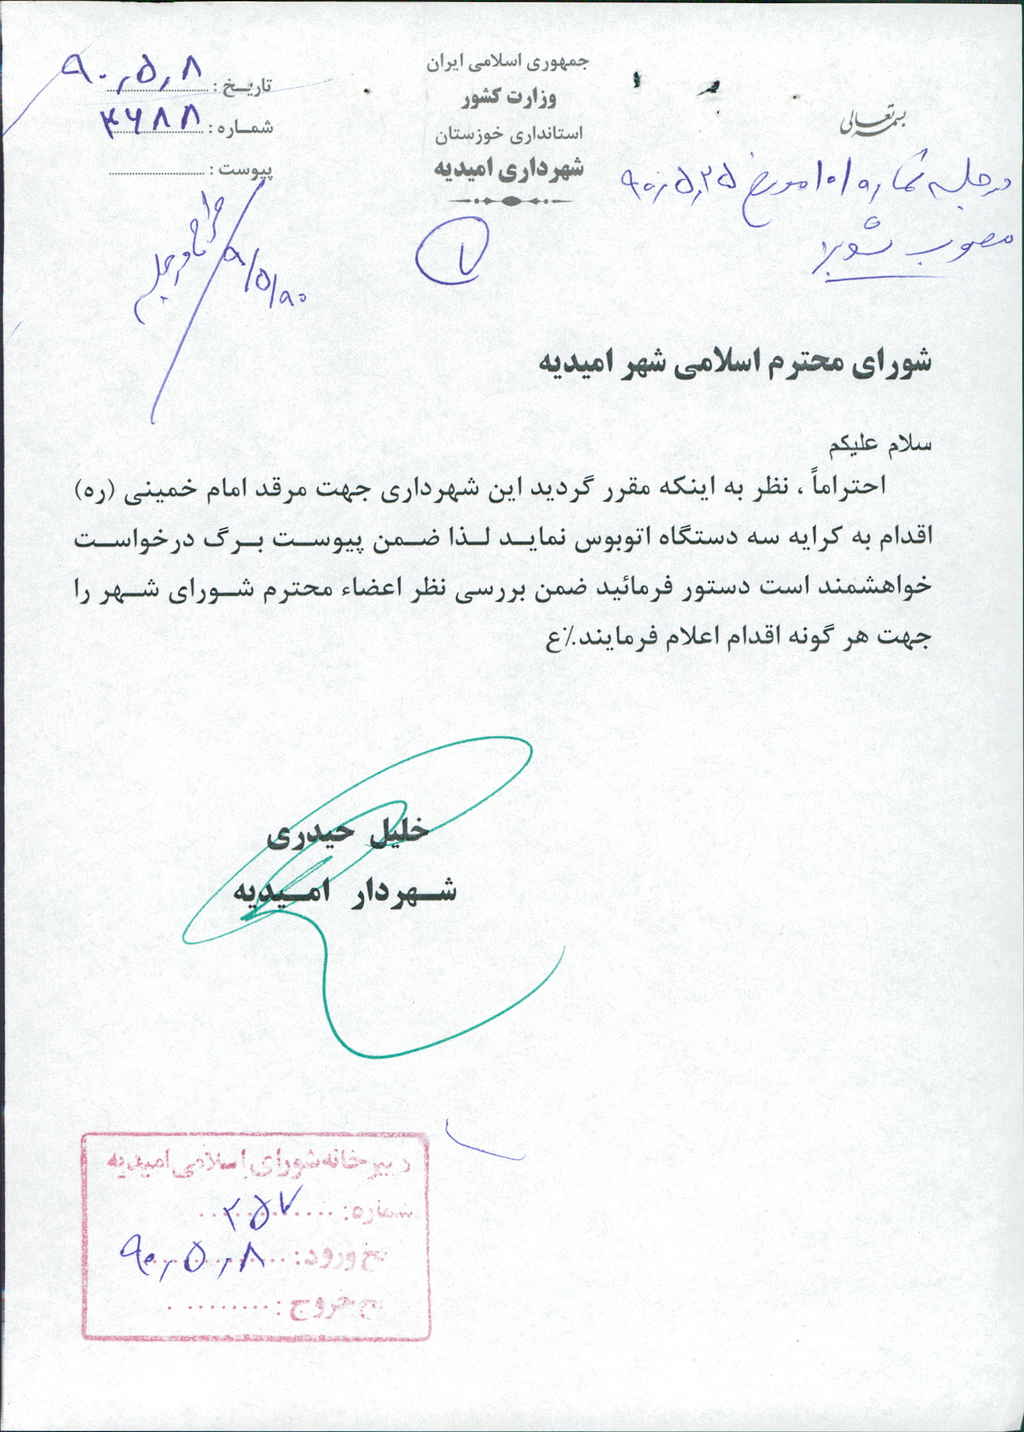 بسمه تعالی
جمهوری اسلامی ایران
وزارت کشور
استانداری خوزستان
شهرداری امیدیه
تاریخ : ۹۰,۵,۸
شماره : ۴۶۸۸
پیوست :
در جلسه شماره ۱۰۱ مورخ ۹۰,۵,۲۵
مصوب شورا
۷
طرح در جلسه
۹۰/۵/۹
شورای محترم اسلامی شهر امیدیه
سلام علیکم
احتراماً ، نظر به اینکه مقرر گردید این شهرداری جهت مرقد امام خمینی (ره)
اقدام به کرایه سه دستگاه اتوبوس نماید لذا ضمن پیوست برگ درخواست
خواهشمند است دستور فرمائید ضمن بررسی نظر اعضاء محترم شورای شهر را
جهت هر گونه اقدام اعلام فرمایند.٪ع
خلیل حیدری
شهردار امیدیه
دبیرخانه شورای اسلامی امیدیه
شماره: ۳۵۷
خ ورود: ۹۰,۵,۸
خ خروج :